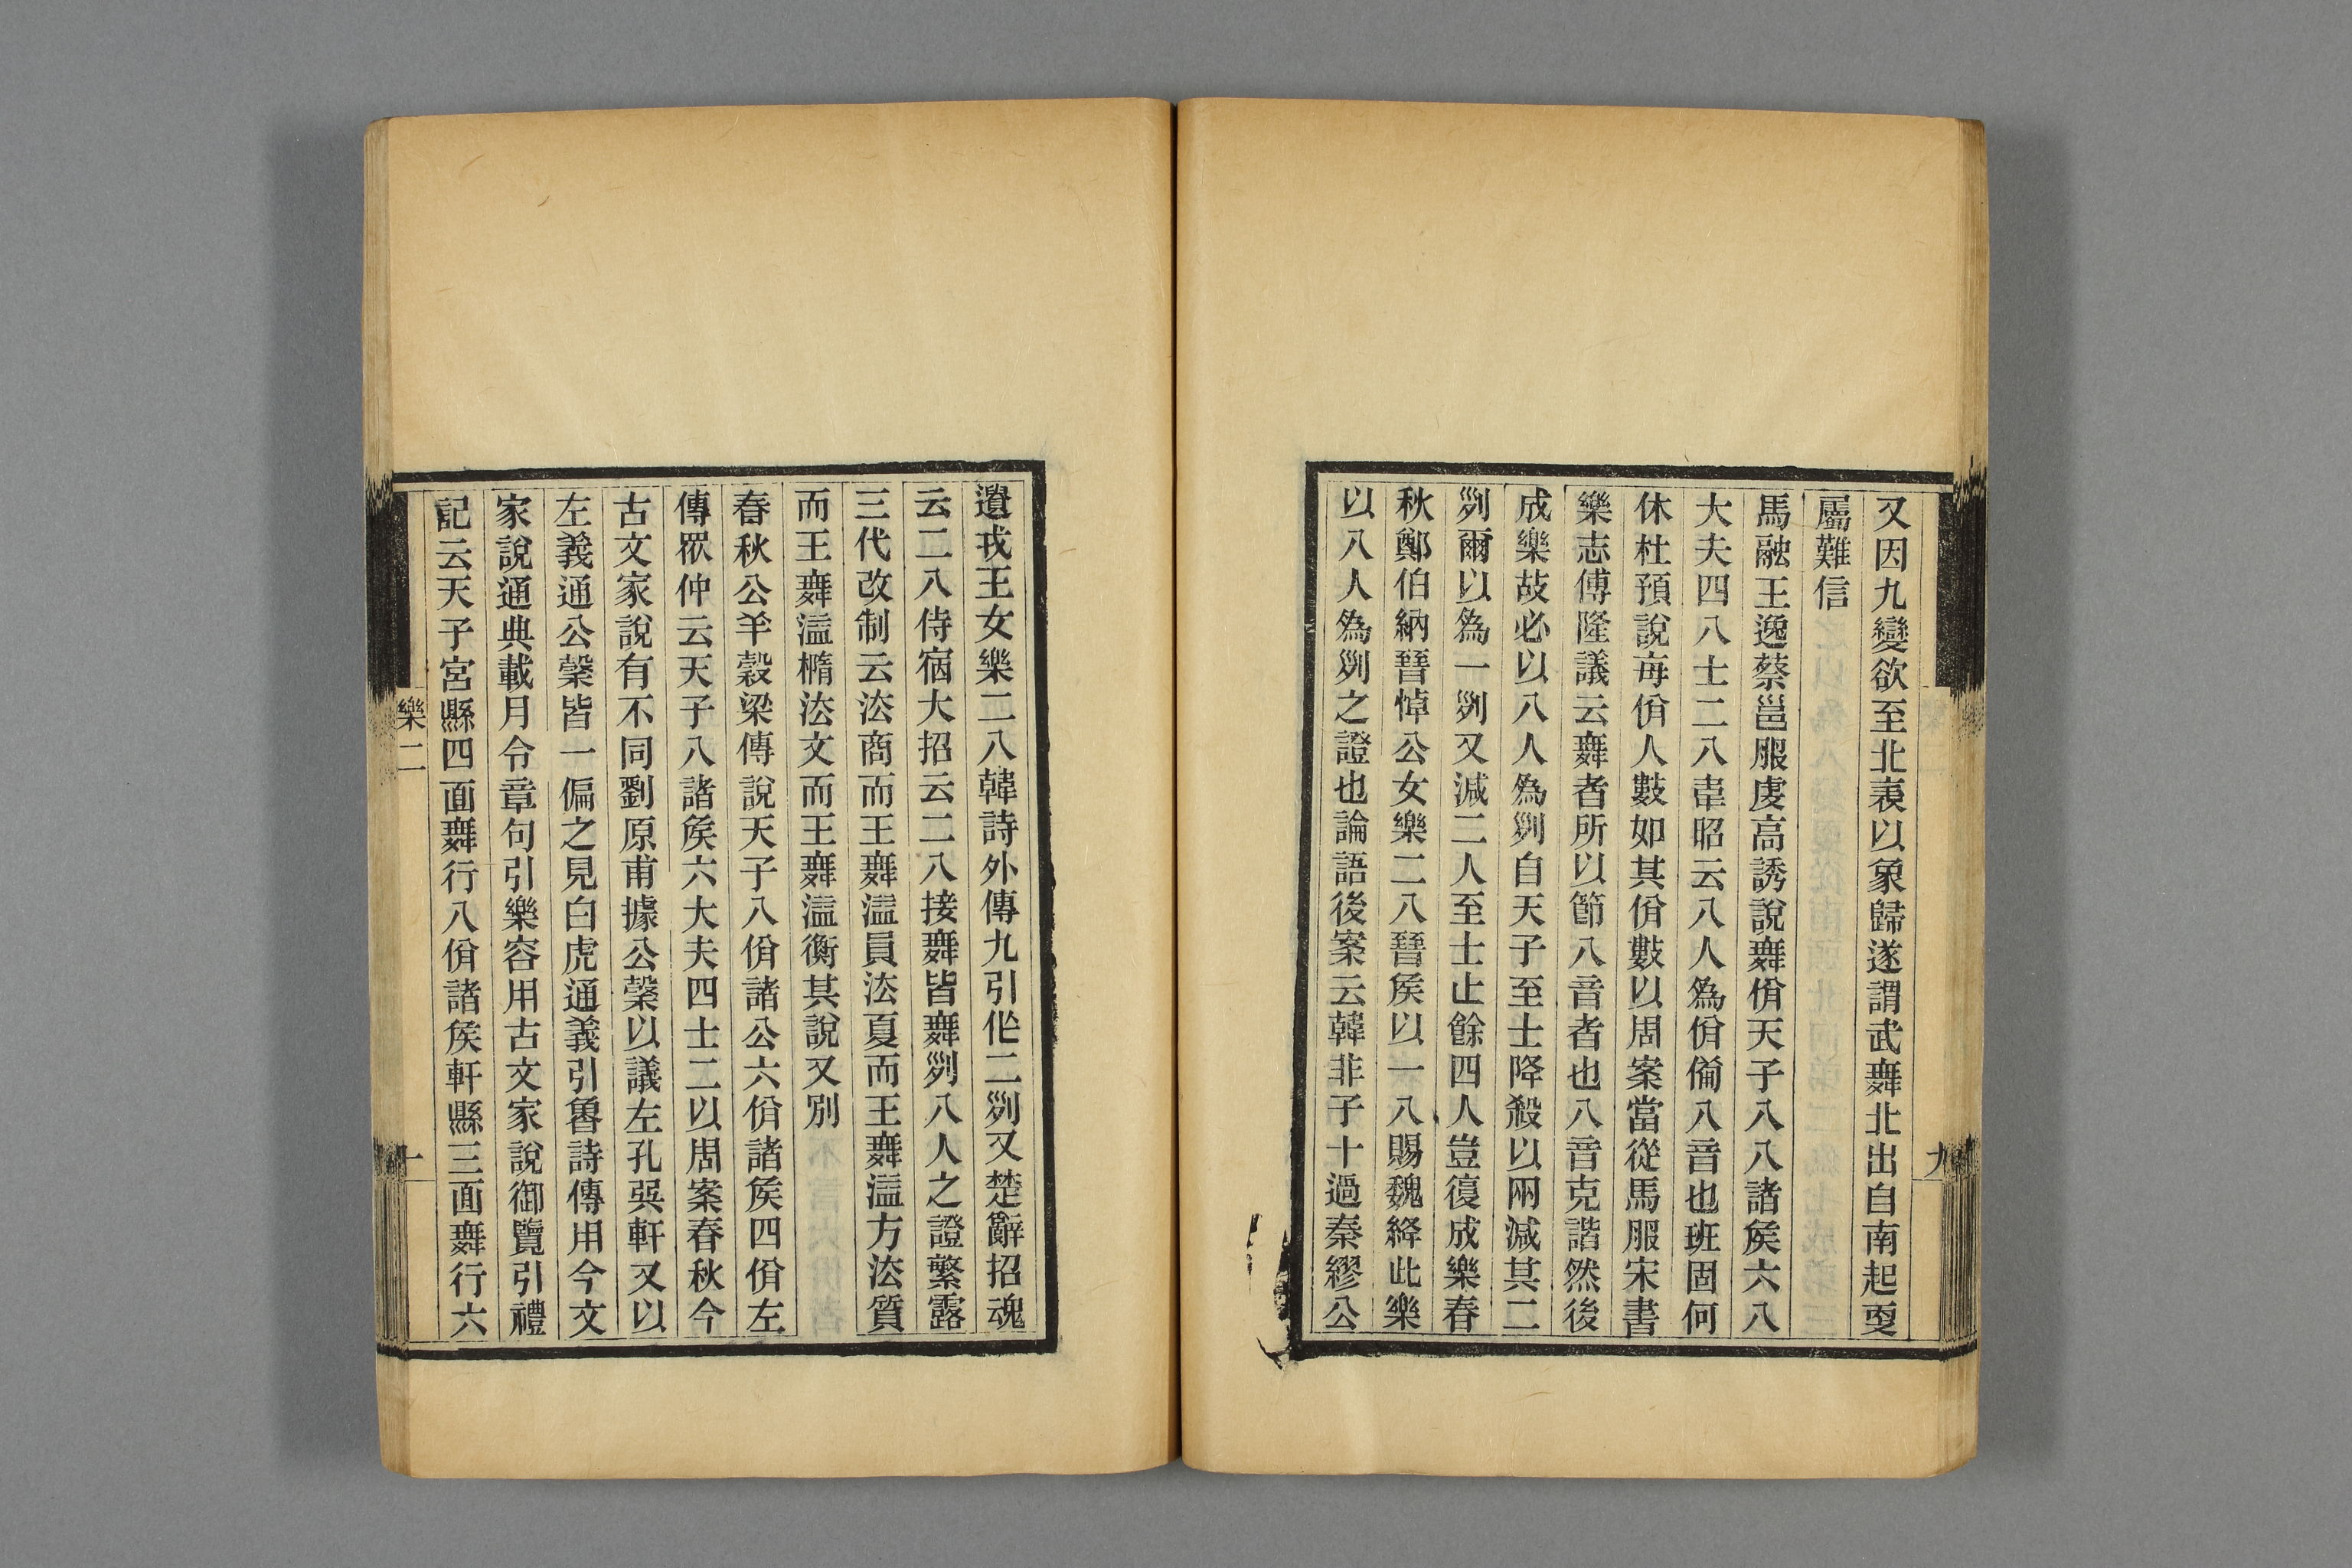 又因九變欲至北表以象歸遂謂武舞北出自南起更
屬難信
馬融王逸蔡邕服虔高誘說舞佾天子八八諸矦六八
大夫四八士二八韋昭云八人爲佾僃八音也班固何
休杜預說每佾人數如其佾數以周案當從馬服宋書
樂志傅隆議云舞者所以節八音者也八音克諧然後
成樂故必以八人爲列自天子至士降殺以兩減其二
列爾以爲一列又減二人至士止餘四人豈復成樂春
秋鄭伯納晉悼公女樂二八晉矦以一八賜魏絳此樂
以八人爲列之證也論語後案云韓非子十過秦繆公
九
遺戎王女樂二八韓詩外傳九引作二列又楚辭招魂
云二八侍宿大招云二八接舞皆舞列八人之證繁露
三代改制云法商而王舞溢員法夏而王舞溢方法質
而王舞溢橢法文而王舞溢衡其說又別
春秋公羊穀梁傳說天子八佾諸公六佾諸矦四佾左
傳眾仲云天子八諸矦六大夫四士二以周案春秋今
古文家說有不同劉原甫據公穀以議左孔㢲軒又以
左義通公穀皆一偏之見白虎通義引魯詩傳用今文
家說通典載月令章句引樂容用古文家說御覽引禮
記云天子宮縣四面舞行八佾諸矦軒縣三面舞行六
樂二
十